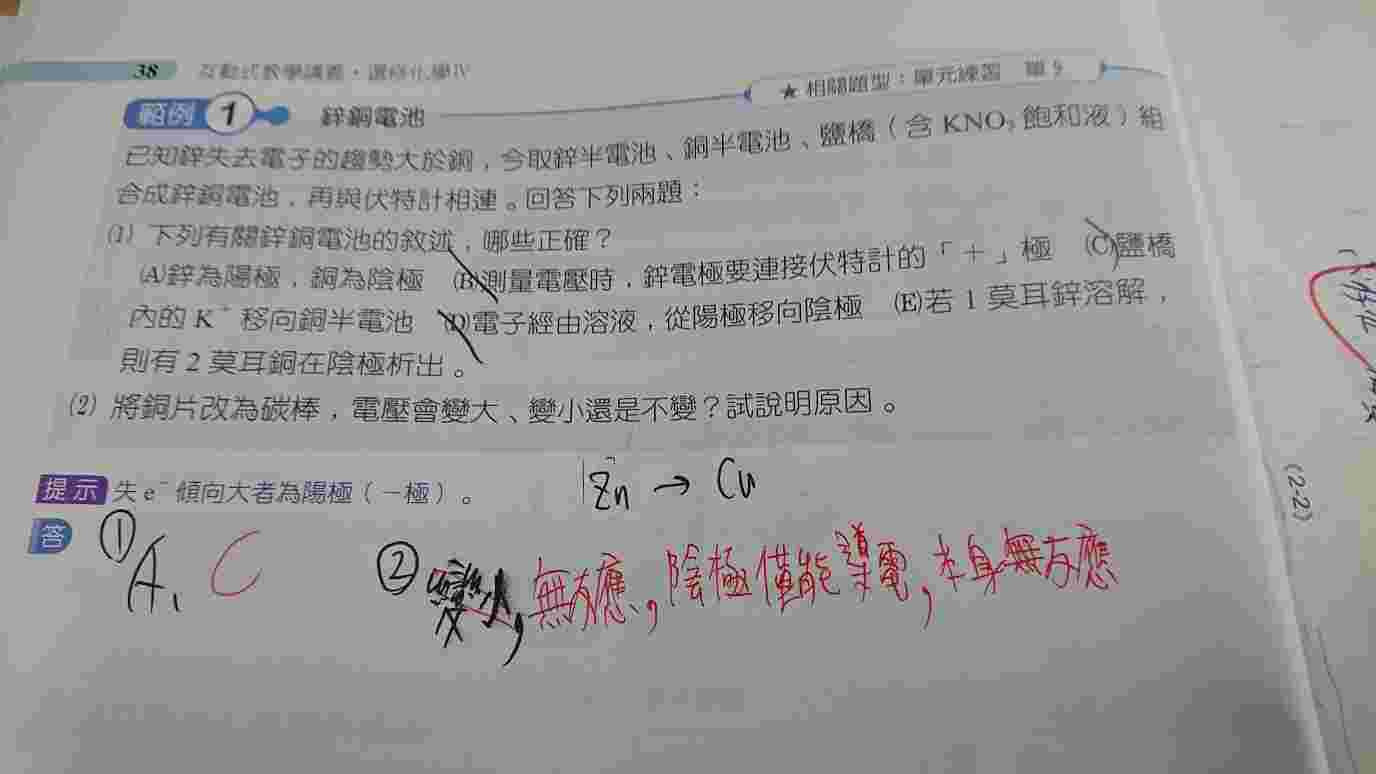 38 互動式教學講義·選修化學IV
★相關題型：單元練習 單9
範例 1 鋅銅電池
已知鋅失去電子的趨勢大於銅，今取鋅半電池、銅半電池、鹽橋（含 KNO₃ 飽和液）組
合成鋅銅電池，再與伏特計相連。回答下列兩題：
(1) 下列有關鋅銅電池的敘述，哪些正確？
(A)鋅為陽極，銅為陰極 (B)測量電壓時，鋅電極要連接伏特計的「＋」極 (C)鹽橋
內的 K⁺ 移向銅半電池 (D)電子經由溶液，從陽極移向陰極 (E)若 1 莫耳鋅溶解，
則有 2 莫耳銅在陰極析出。
(2) 將銅片改為碳棒，電壓會變大、變小還是不變？試說明原因。
提示 失 e⁻ 傾向大者為陽極（－極）。
Zn → Cu
答 ① A、C ② 無反應，陰極僅能導電，本身無反應
(2-2)